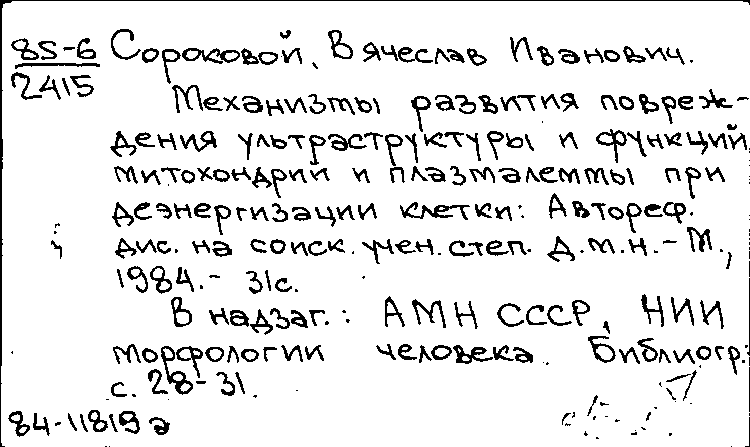 85-6 Сороковой, Вячеслав Иванович.
2415
Механизмы развития повреж-
дения ультраструктуры и функций
митохондрий и плазмалеммы при
деэнергизации клетки: Автореф.
дис. на соиск. учен. степ. д.м.н. - М.,
1984. - 31с.
В надзаг.: АМН СССР, НИИ
морфологии человека. Библиогр.:
с. 28-31.
84-11819а